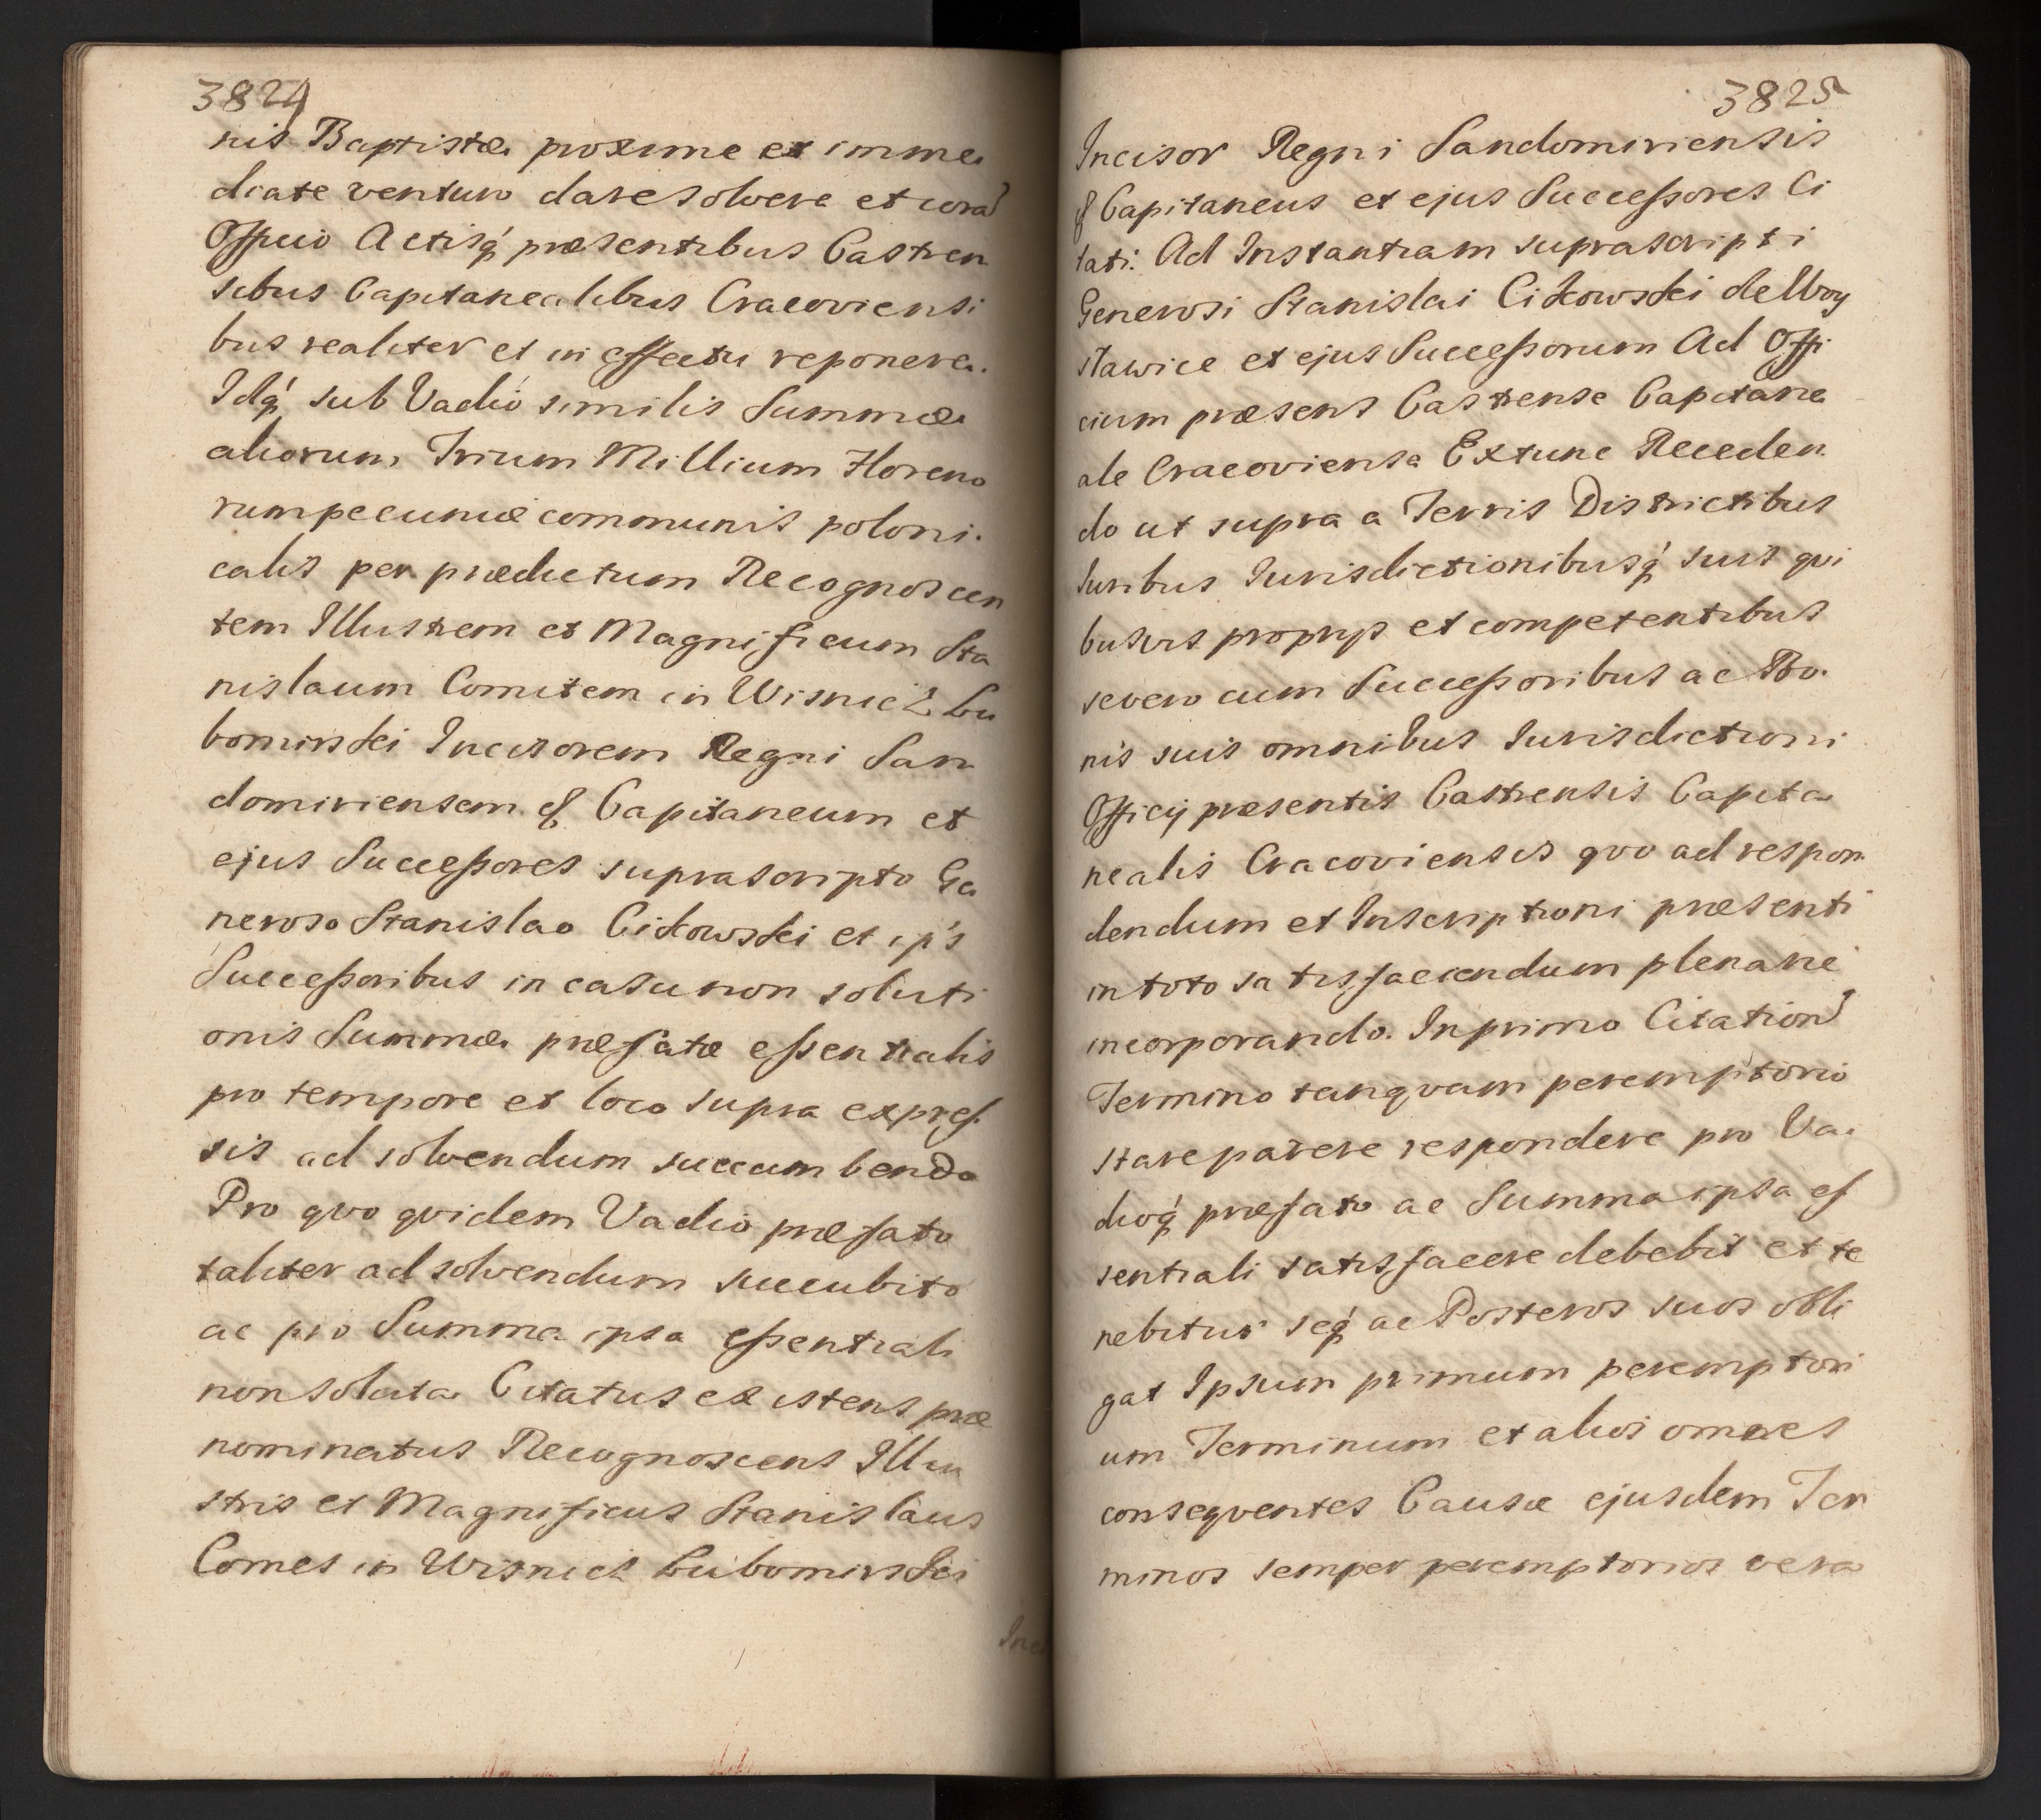 3824
nis Baptistæ proxime et imme
diate venturo dare solvere et corā
Officio Actisq́ præsentibus Castren
sibus Capitanealibus Cracoviensi
bus realiter et in effectu reponere.
Idq́ sub Vadio similis Summæ
aliorum Trium Millium Floreno
rum pecuniæ communis poloni.
calis per prædictum Recognoscen
tem Illustrem et Magnificum Sta
nislaum Comitem in Wisnicz Lu
bomirski Incisorem Regni San
domiriensem & Capitaneum et
ejus Successores suprascripto Ge
neroso Stanislao Cikowski et ip's
Successoribus in casu non soluti
onis Summæ præfatæ essentialis
pro tempore et loco supra expres
sis ad solvendum succumbendo
Pro qvo qvidem Vadio præfato
taliter ad solvendum succubito
ac pro Summa ipsa essentiali
non soluta Citatus existens præ
nominatus Recognoscens Illu
stris et Magnificus Stanislaus
Comes in Wisnicz Lubomirski
Inci
3825
Incisor Regni Sandomiriensis
& Capitaneus et ejus Successores Ci
tati. Ad Instantiam suprascripti
Generosi Stanislai Cikowski de Woy
stawice et ejus Successorum Ad Offi
cium præsens Castrense Capitane
ale Cracoviense Extunc Receden
do ut supra a Terris Districtibus
Iuribus Iurisdictionibusq́ suis qvi
busvis proprijs et competentibus
se vero cum Successoribus ac Bo.
nis suis omnibus Iurisdictioni
Officij præsentis Castrensis Capita
nealis Cracoviensis qvo ad respon
dendum et Inscriptioni præsenti
in toto satisfaciendum plenarie
incorporando. In primo Citationē
Termino tanqvam peremptorio
stare parere respondere pro Va.
dioq́ præfato ac Summa ipsa es
sentiali satisfacere debebit et te
nebitur seq́ ac Posteros suos obli
gat Ipsum primum peremptori
um Terminum et alios omnes
conseqventes Causæ ejusdem Ter
minos semper peremptorios vera